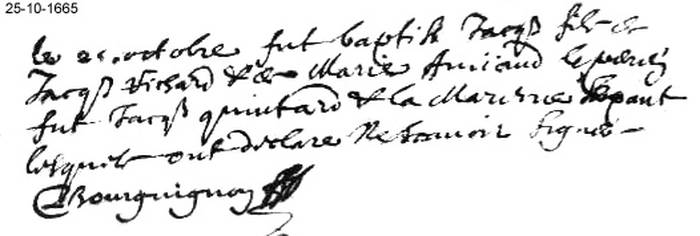 25-10-1665
le 25 octobre fut baptisé Jacqs fils de
Jacqs Richard & de Marie Amiaud le parein
fut Jacqs quintard & la Mareine
lesquels ont declare ne scauoir signer
Bourguignon